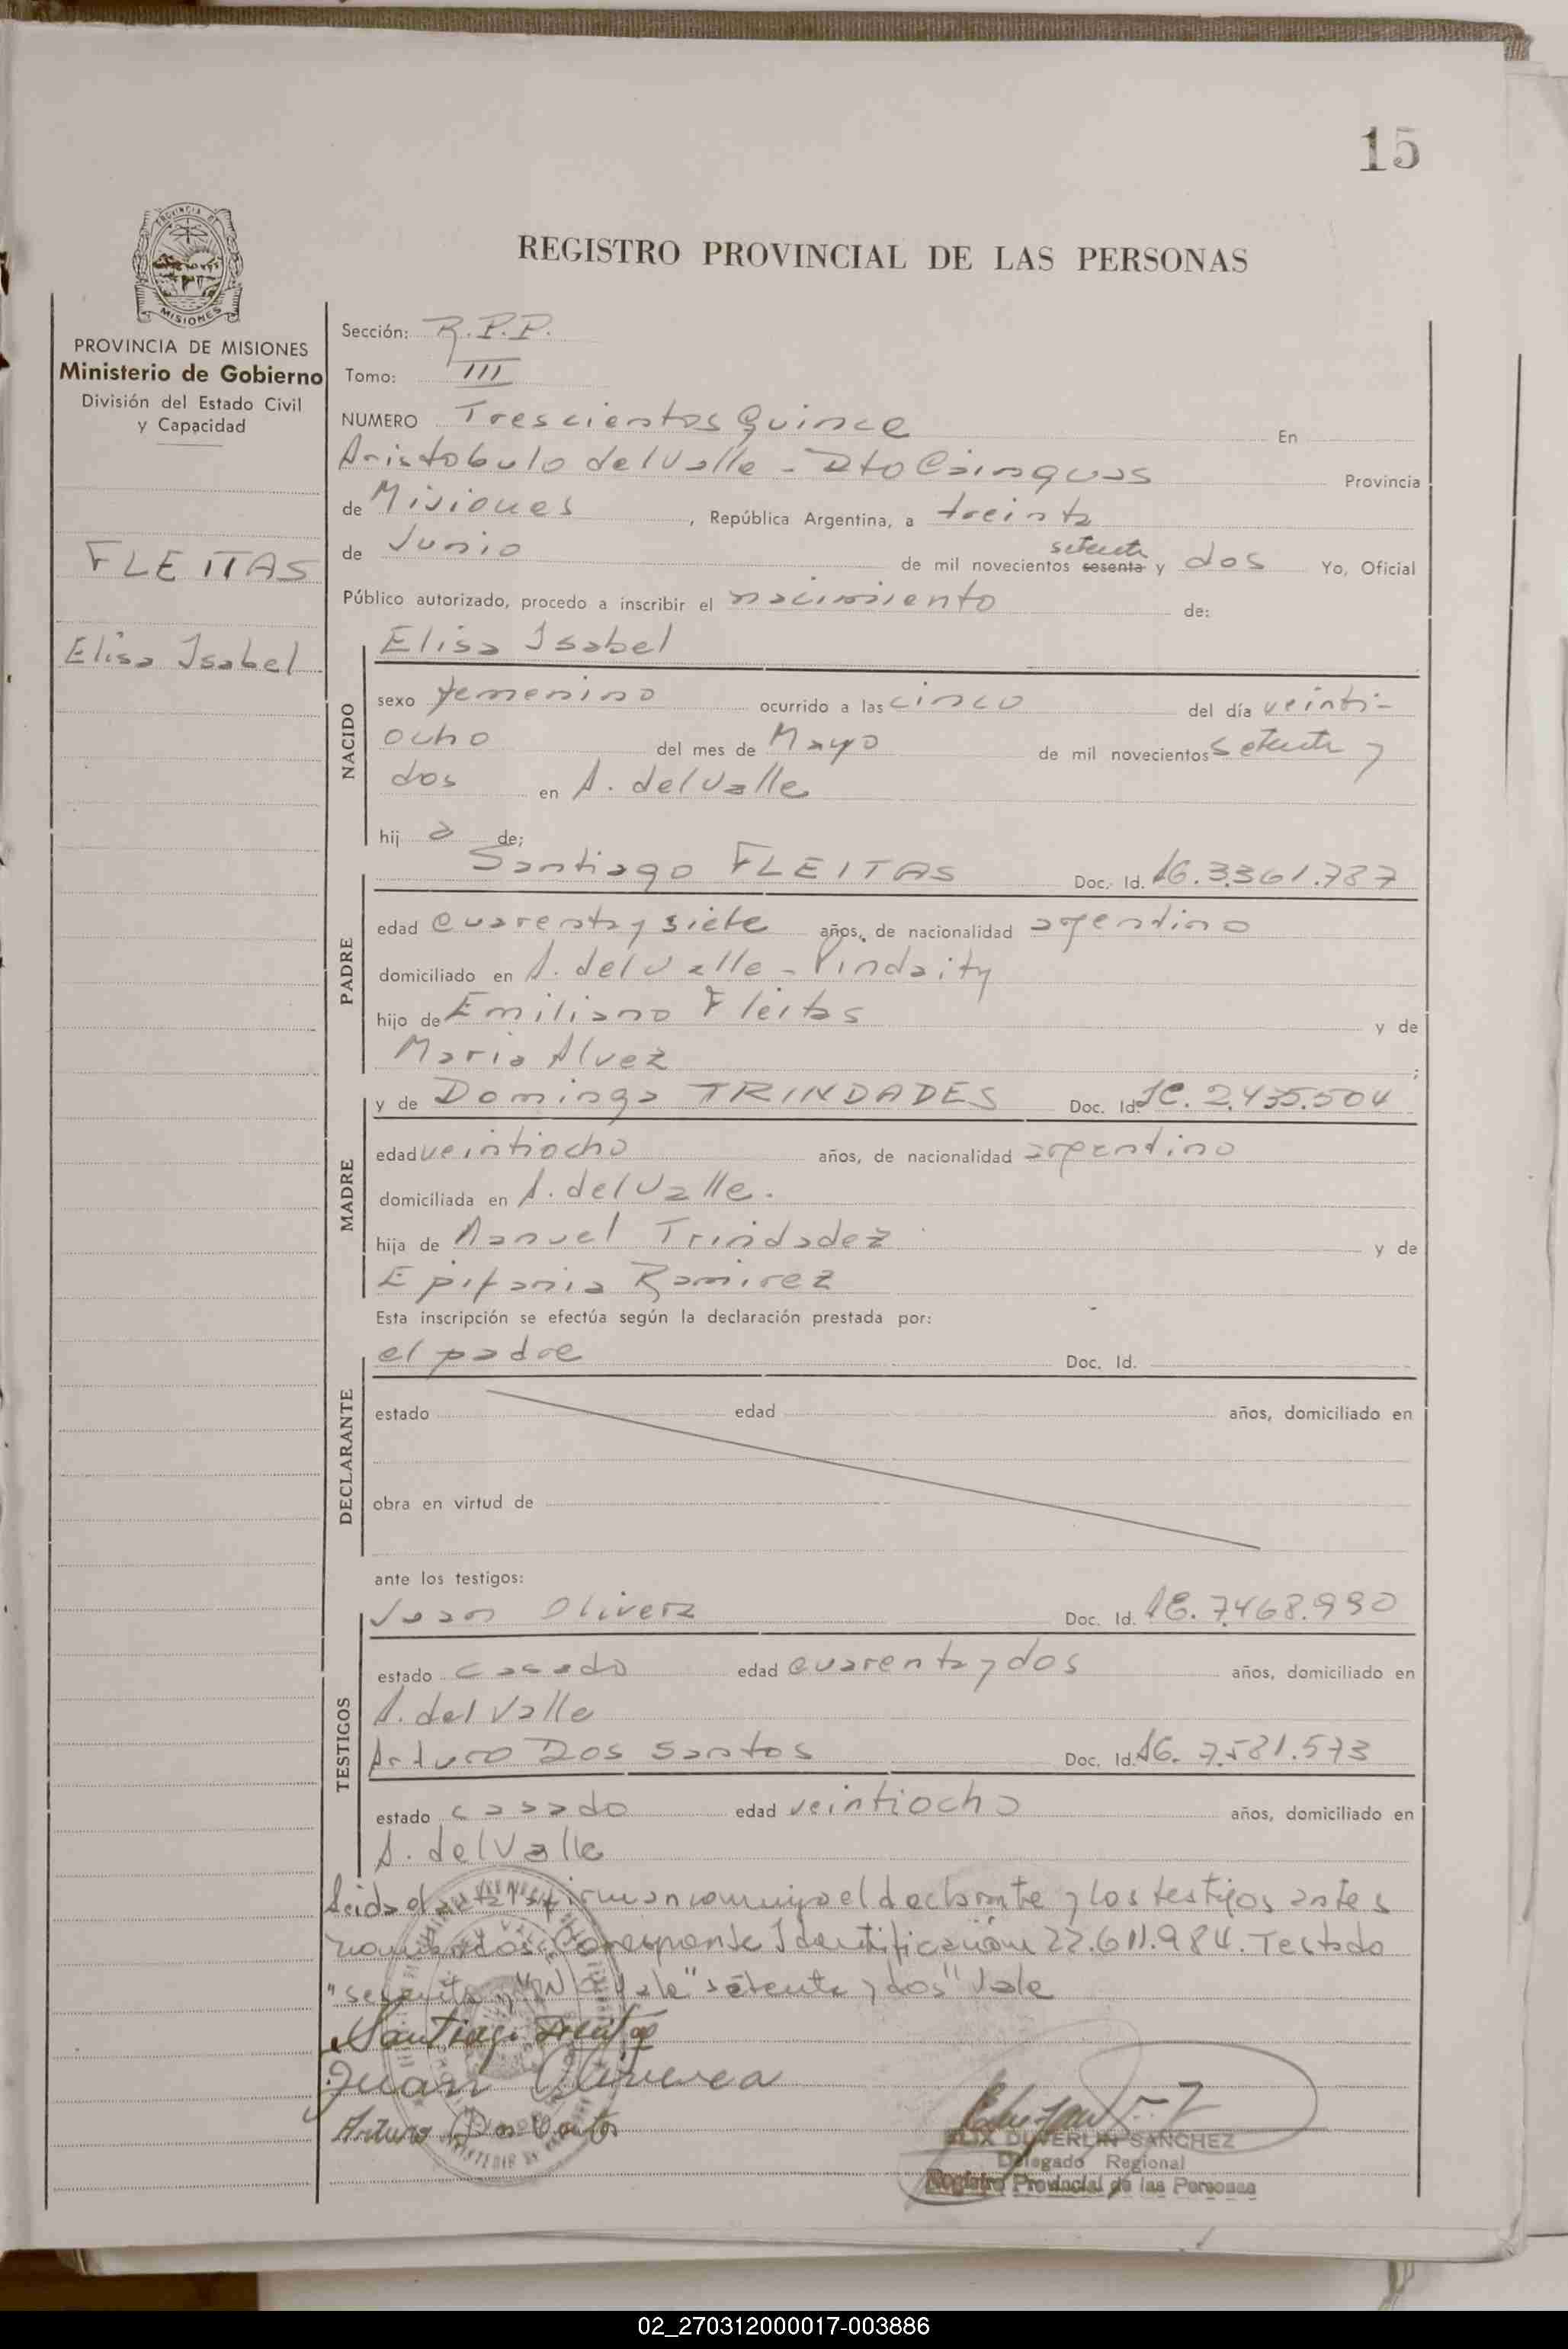 15
PROVINCIA DE
MISIONES
REGISTRO PROVINCIAL DE LAS PERSONAS
PROVINCIA DE MISIONES
Ministerio de Gobierno
División del Estado Civil
y Capacidad
FLEITAS
Elisa Isabel
Sección: R.P.P.
Tomo: III
NUMERO Trescientos Quince En
Aristobulo del Valle - Dto Cainguas Provincia
de Misiones, República Argentina, a treinta
de Junio de mil novecientos sesenta setenta y dos Yo, Oficial
Público autorizado, procedo a inscribir el nacimiento de:
NACIDO
Elisa Isabel
sexo femenino ocurrido a las cinco del día veinti-
ocho del mes de Mayo de mil novecientos setenta y
dos en A. del Valle
hija de;
PADRE
Santiago FLEITAS Doc. Id. 3.361.787
edad cuarenta y siete años, de nacionalidad argentino
domiciliado en A. del Valle - Pindaity
hijo de Emiliano Fleitas y de
Maria Alvez ;
MADRE
y de Dominga TRINDADES Doc. Id. 2.435.504
edad veintiocho años, de nacionalidad argentino
domiciliada en A. del Valle.
hija de Manuel Trindadez y de
Epifania Ramirez
Esta inscripción se efectúa según la declaración prestada por:
DECLARANTE
el padre Doc. Id.
estado edad años, domiciliado en
obra en virtud de
ante los testigos:
TESTIGOS
Juan Olivera Doc. Id. 7.468.990
estado casado edad cuarenta y dos años, domiciliado en
A. del Valle
Arturo Dos Santos Doc. Id. 7.581.573
estado casado edad veintiocho años, domiciliado en
A. del Valle
Leida el acta la firman conmigo el declarante y los testigos antes
nombrados. Corresponde Identificación 22.611.984. Testado
"sesenta y" No Vale "setenta y dos" Vale
Santiago Fleitas
Juan Olivera
Arturo Dos Santos
DUVERLIN SANCHEZ
Delegado Regional
Registro Provincial de las Personas
02_270312000017-003886